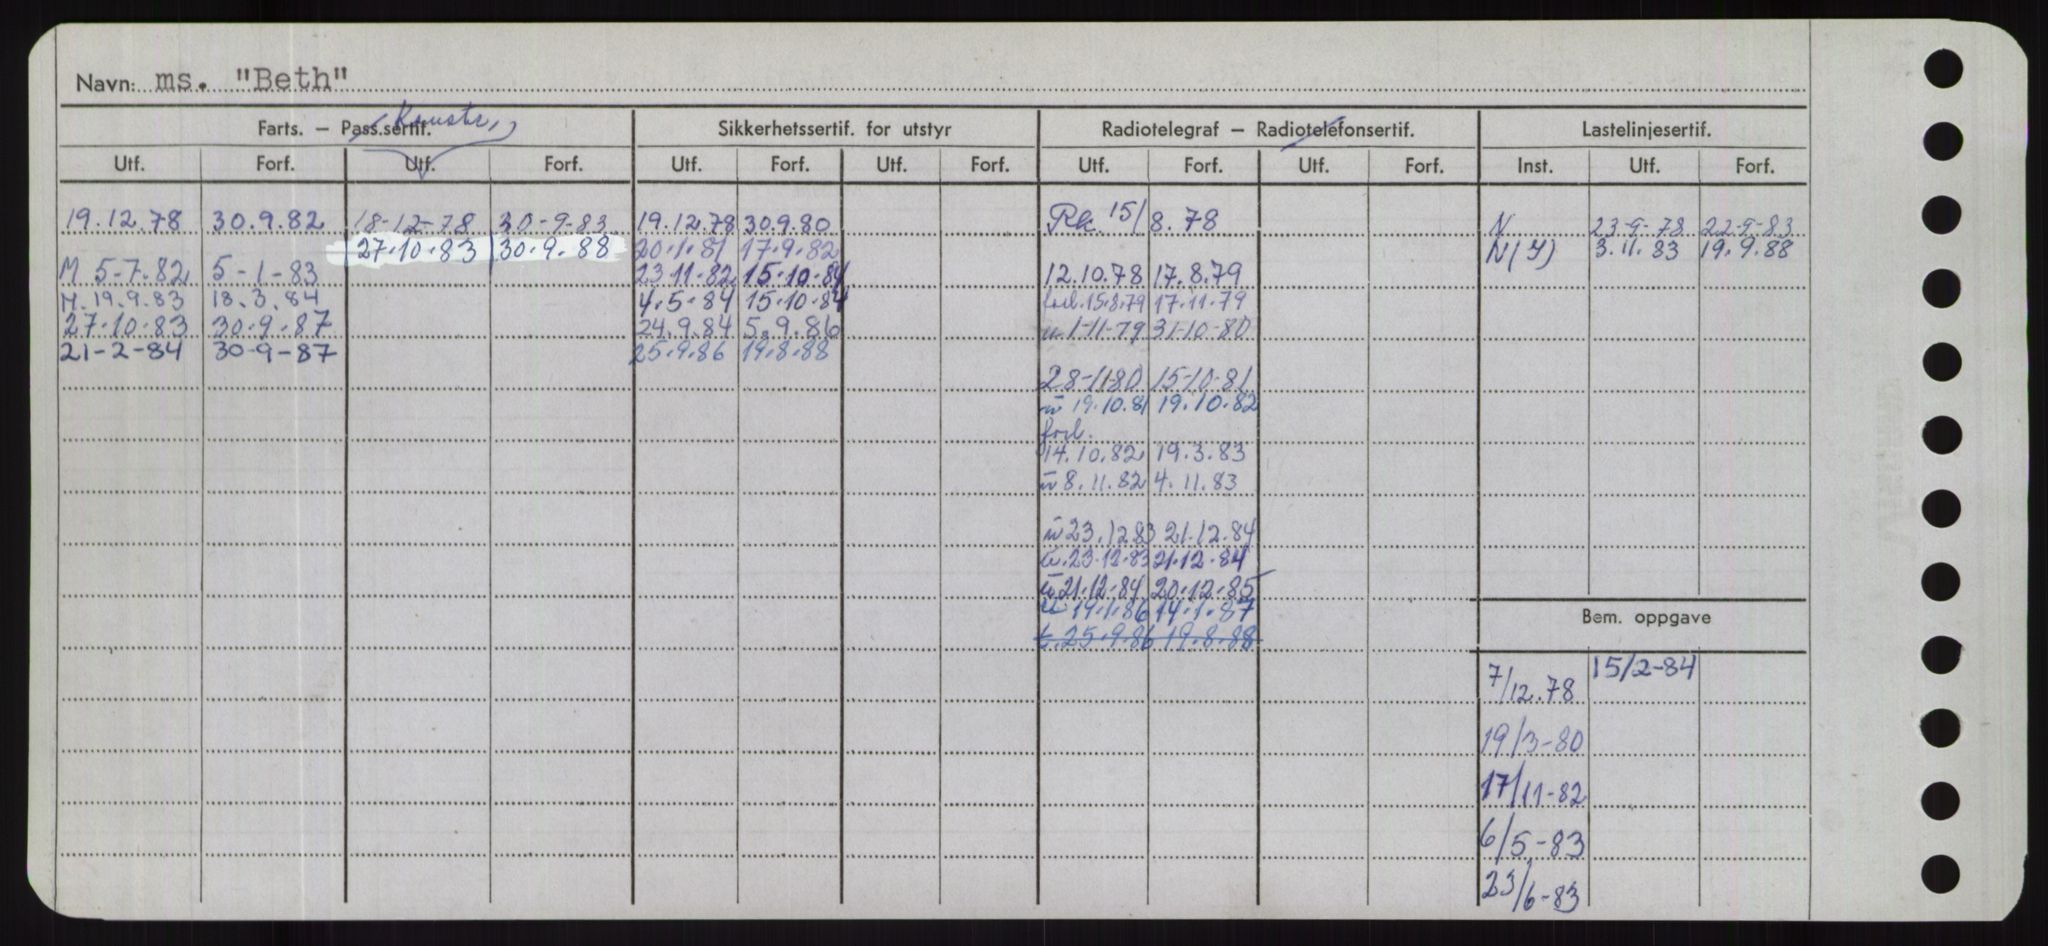 Navn: ms. "Beth"
Konstr.
Farts. — Pass.sertif. Sikkerhetssertif. for utstyr Radiotelegraf — Radiotelefonsertif. Lastelinjesertif.
Utf. Forf. Utf. Forf. Utf. Forf. Utf. Forf. Utf. Forf. Utf. Forf. Inst. Utf. Forf.
19.12.78 30.9.82 18-12-78 30-9-83 19.12.78 30.9.80 Rk. 15/8.78 N 23-9-78 22-9-83
27.10.83 30.9.88 20.1.81 17.9.82 N(Y) 3.11.83 19.9.88
M 5-7.82 5-1-83 23.11.82 15.10.84 12.10.78 17.8.79
M. 19.9.83 18.3.84 4.5.84 15.10.84 forl. 15.8.79 17.11.79
27.10.83 30.9.87 24.9.84 5.9.86 u 1-11-79 31-10-80
21-2-84 30-9-87 25.9.86 19.8.88
28-11-80 15-10-81
u 19.10.81 19.10.82
forl.
14.10.82 19.3.83
u 8.11.82 4.11.83
u 23.12.83 21.12.84
u. 23.12.83 21.12.84
u 21.12.84 20.12.85
u 14.1.86 14.1.87
t. 25.9.86 19.8.88
Bem. oppgave
7/12.78 15/2-84
19/3-80
17/11-82
6/5-83
23/6-83